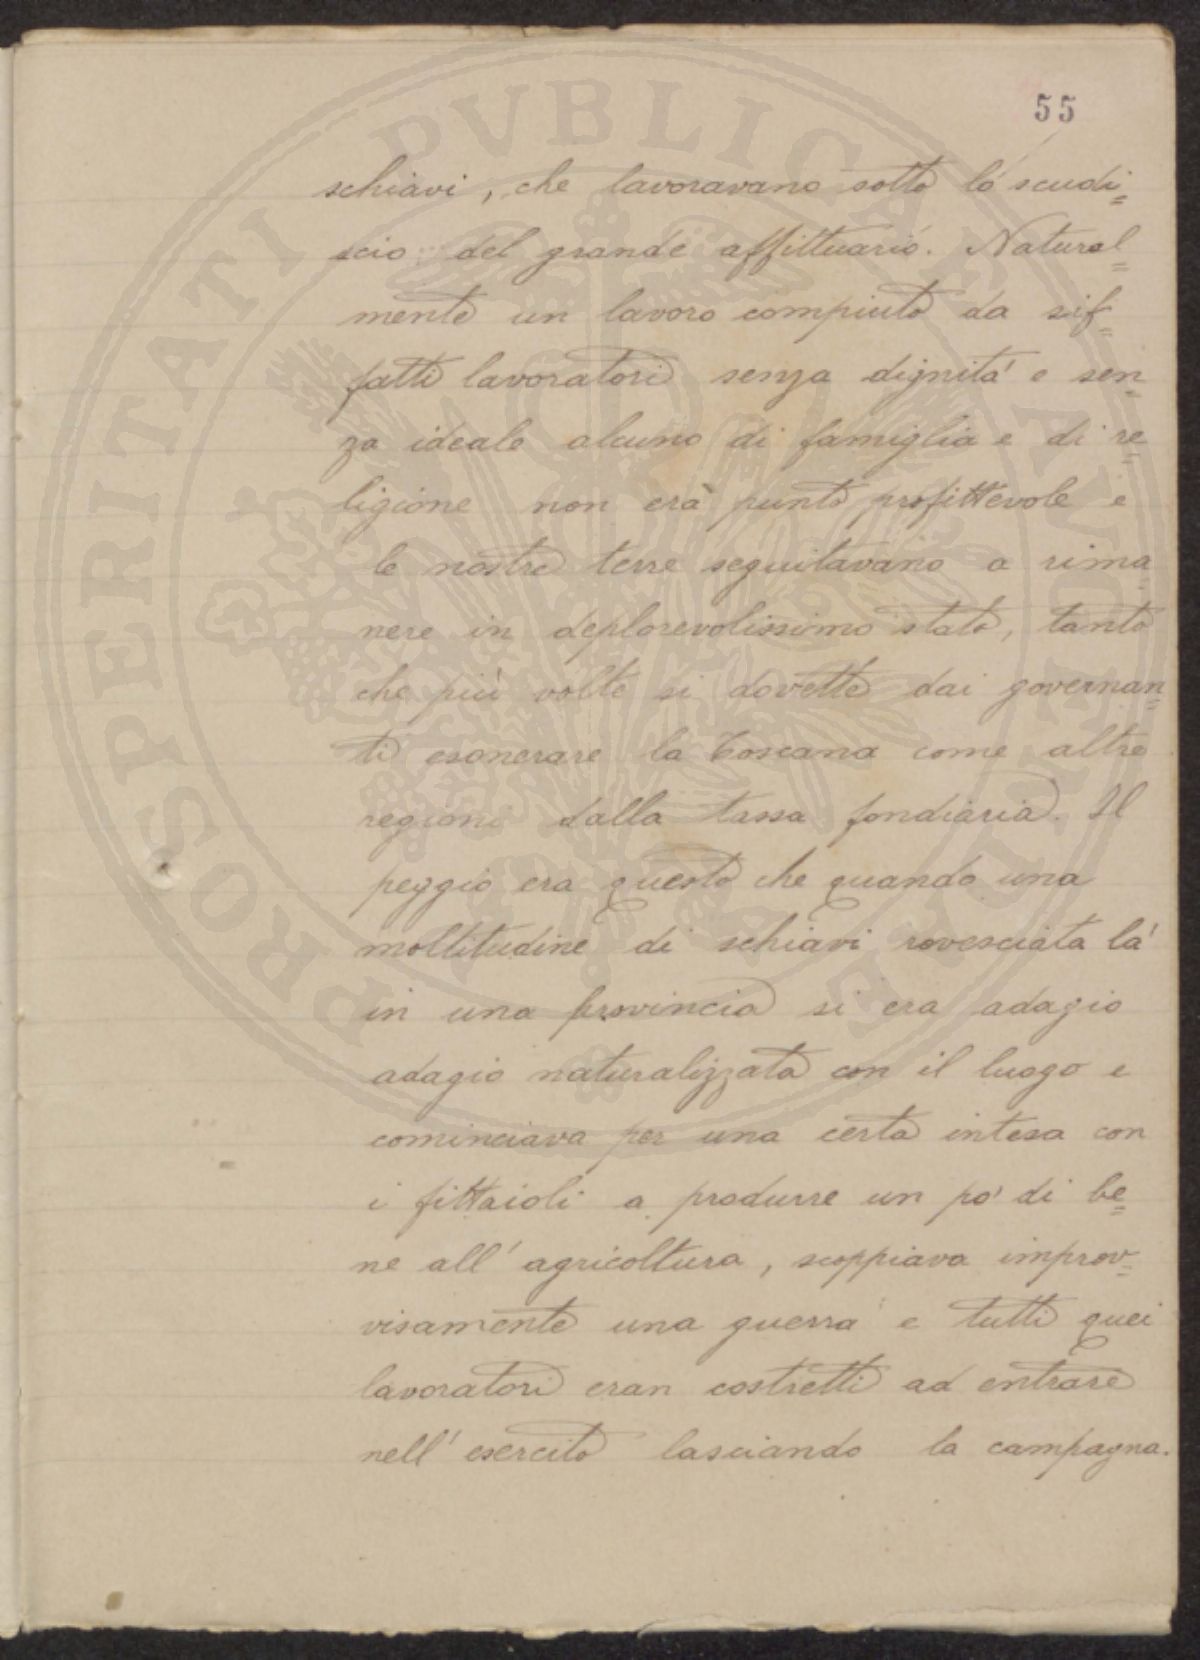 55
schiavi, che lavoravano sotto lo scudi=
scio del grande affittuario. Natural=
mente un lavoro compiuto da sif=
fatti lavoratori senza dignità e sen=
za ideale alcuno di famiglia e di re=
ligione non era punto profittevole e
le nostre terre seguitavano a rima=
nere in deplorevolissimo stato, tanto
che più volte si dovette dai governan=
ti esonerare la Toscana come altre
regioni dalla tassa fondiaria. Il
peggio era questo che quando una
moltitudine di schiavi rovesciata là
in una provincia si era adagio
adagio naturalizzata con il luogo e
cominciava per una certa intesa con
i fittaioli a produrre un po' di be=
ne all'agricoltura, scoppiava improv=
visamente una guerra e tutti quei
lavoratori eran costretti ad entrare
nell'esercito lasciando la campagna.
PROSPERITATI PVBLICAE AVGENDAE